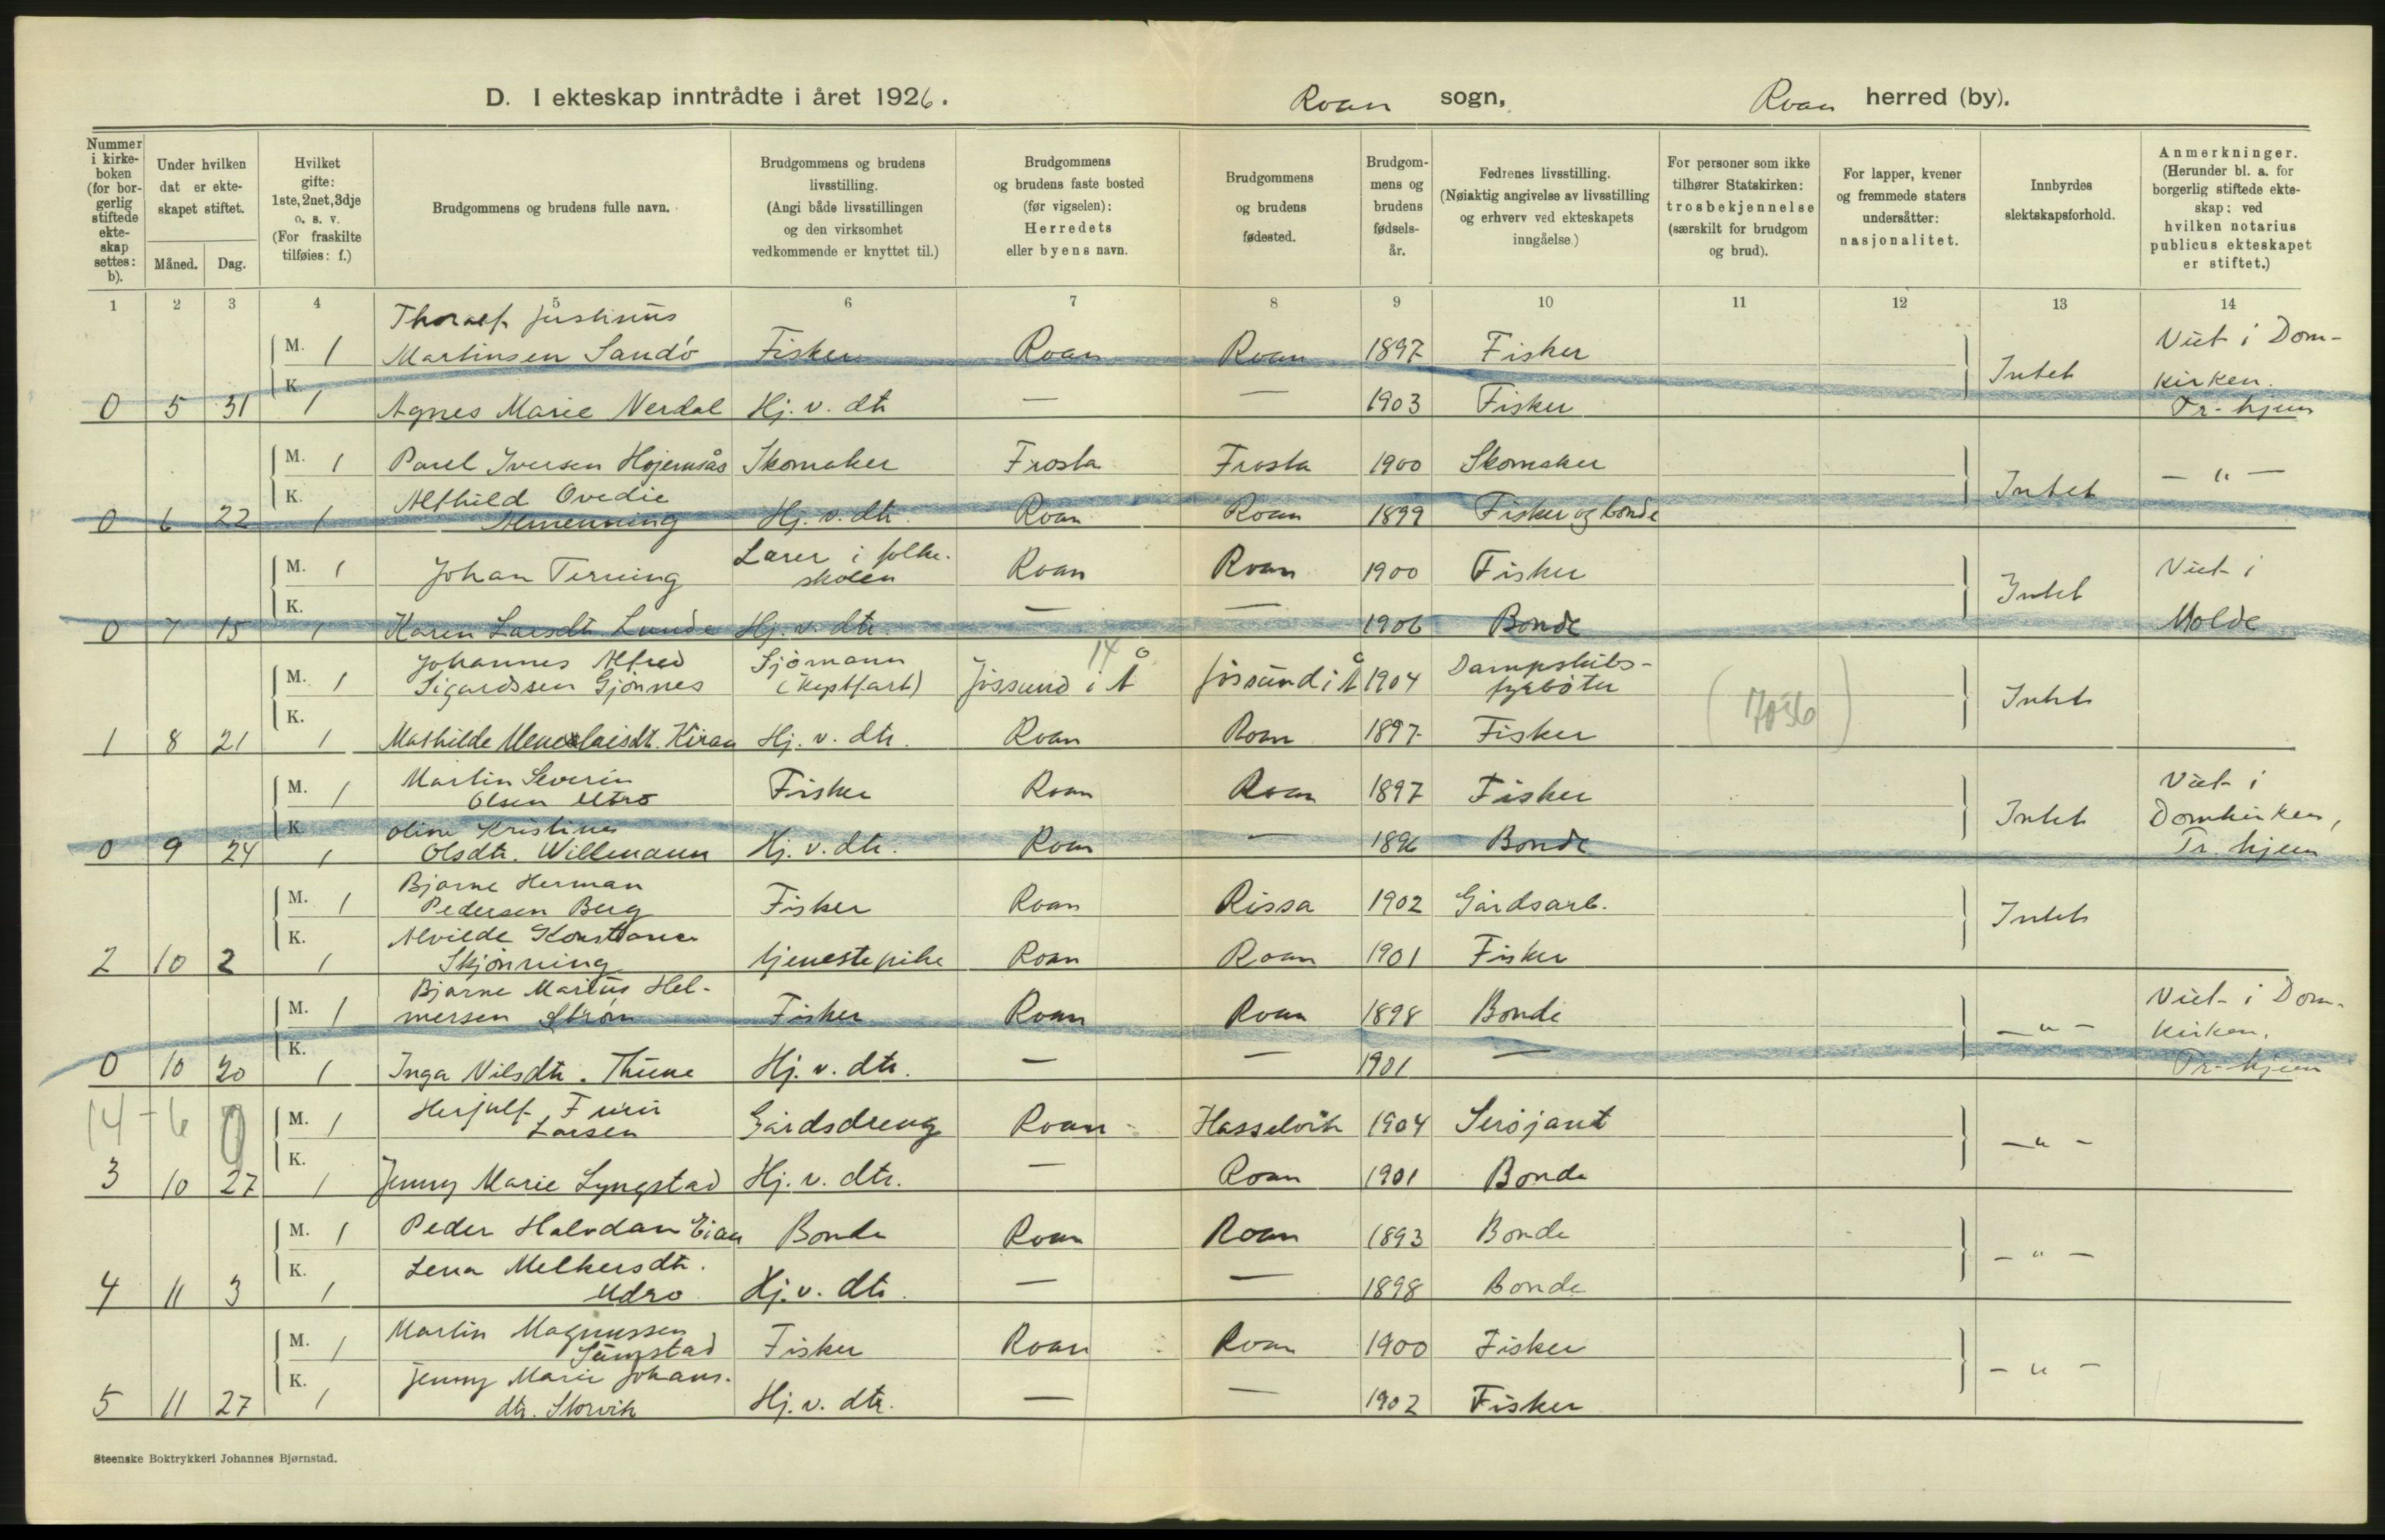 D. I ekteskap inntrådte i året 1926. Roan sogn, Roan herred (by).
Nummer i kirkeboken (for borgerlig stiftede ekteskap settes: b).
Under hvilken dat er ekteskapet stiftet.
Måned. Dag.
Hvilket gifte: 1ste, 2net, 3dje o. s. v. (For fraskilte tilføies: f.)
Brudgommens og brudens fulle navn.
Brudgommens og brudens livsstilling. (Angi både livsstillingen og den virksomhet vedkommende er knyttet til.)
Brudgommens og brudens faste bosted (før vigselen): Herredets eller byens navn.
Brudgommens og brudens fødested.
Brudgommens og brudens fødselsår.
Fedrenes livsstilling. (Nøiaktig angivelse av livsstilling og erhverv ved ekteskapets inngåelse.)
For personer som ikke tilhører Statskirken: trosbekjennelse (særskilt for brudgom og brud).
For lapper, kvener og fremmede staters undersåtter: nasjonalitet.
Innbyrdes slektskapsforhold.
Anmerkninger. (Herunder bl. a. for borgerlig stiftede ekteskap: ved hvilken notarius publicus ekteskapet er stiftet.)
1 2 3 4 5 6 7 8 9 10 11 12 13 14
M. 1 Thoralf Justinus Martinsen Sandö Fisker Roan Roan 1897 Fisker Intet Viet i Domkirken. Tr.hjem
0 5 31 K. 1 Agnes Marie Nerdal Hj. v. dtr — — 1903 Fisker
M. 1 Paul Iversen Hojemsås Skomaker Frosta Frosta 1900 Skomaker Intet — " —
0 6 22 K. 1 Alfhild Ovedie Almenning Hj. v. dtr. Roan Roan 1899 Fisker og bonde
M. 1 Johan Terning Lærer i folkeskolen Roan Roan 1900 Fisker Intet Viet i Molde
0 7 15 K. 1 Karen Larsdtr Lunde Hj. v. dtr. — — 1906 Bonde
M. 1 Johannes Alfred Sigurdssen Gjönnes Sjömann Jössund i Å 14 Jössund i Å 1904 Dampskibsfyrböter (7036) Intet
1 8 21 K. 1 Mathilde Menelaisdt. Kiran Hj. v. dtr. Roan Roan 1897 Fisker
M. 1 Martin Severin Olsen Utro Fisker Roan Roan 1897 Fisker Intet Viet i Domkirken, Tr.hjem
0 9 24 K. 1 Oline Kristine Olsdtr. Willmann Hj. v. dtr. Roan — 1896 Bonde
M. 1 Bjarne Herman Pedersen Berg Fisker Roan Rissa 1902 Gårdsarb. Intet
2 10 2 K. 1 Alvilde Konstance Skjönning tjenestepike Roan Roan 1901 Fisker
M. 1 Bjarne Marius Helmersen Ström Fisker Roan Roan 1898 Bonde — " — Viet i Domkirken. Tr.hjem
0 10 20 K. 1 Inga Nilsdtr. Thune Hj. v. dtr. — — 1901 —
14 - 6 0
M. 1 Herjulf Larsen Gårdsdreng Roan Hasselvik 1904 Sersjant — " —
3 10 27 K. 1 Jenny Marie Lyngstad Hj. v. dtr. — Roan 1901 Bonde
M. 1 Peder Halvdan Eian Bonde Roan Roan 1893 Bonde — " —
4 11 3 K. 1 Lena Melkersdtr. Udro Hj. v. dtr. — — 1898 Bonde
M. 1 Martin Magnussen Sumstad Fisker Roan Roan 1900 Fisker — " —
5 11 27 K. 1 Jenny Marie Johansdtr. Storvik Hj. v. dtr. — — 1902 Fisker
Steenske Boktrykkeri Johannes Bjørnstad.